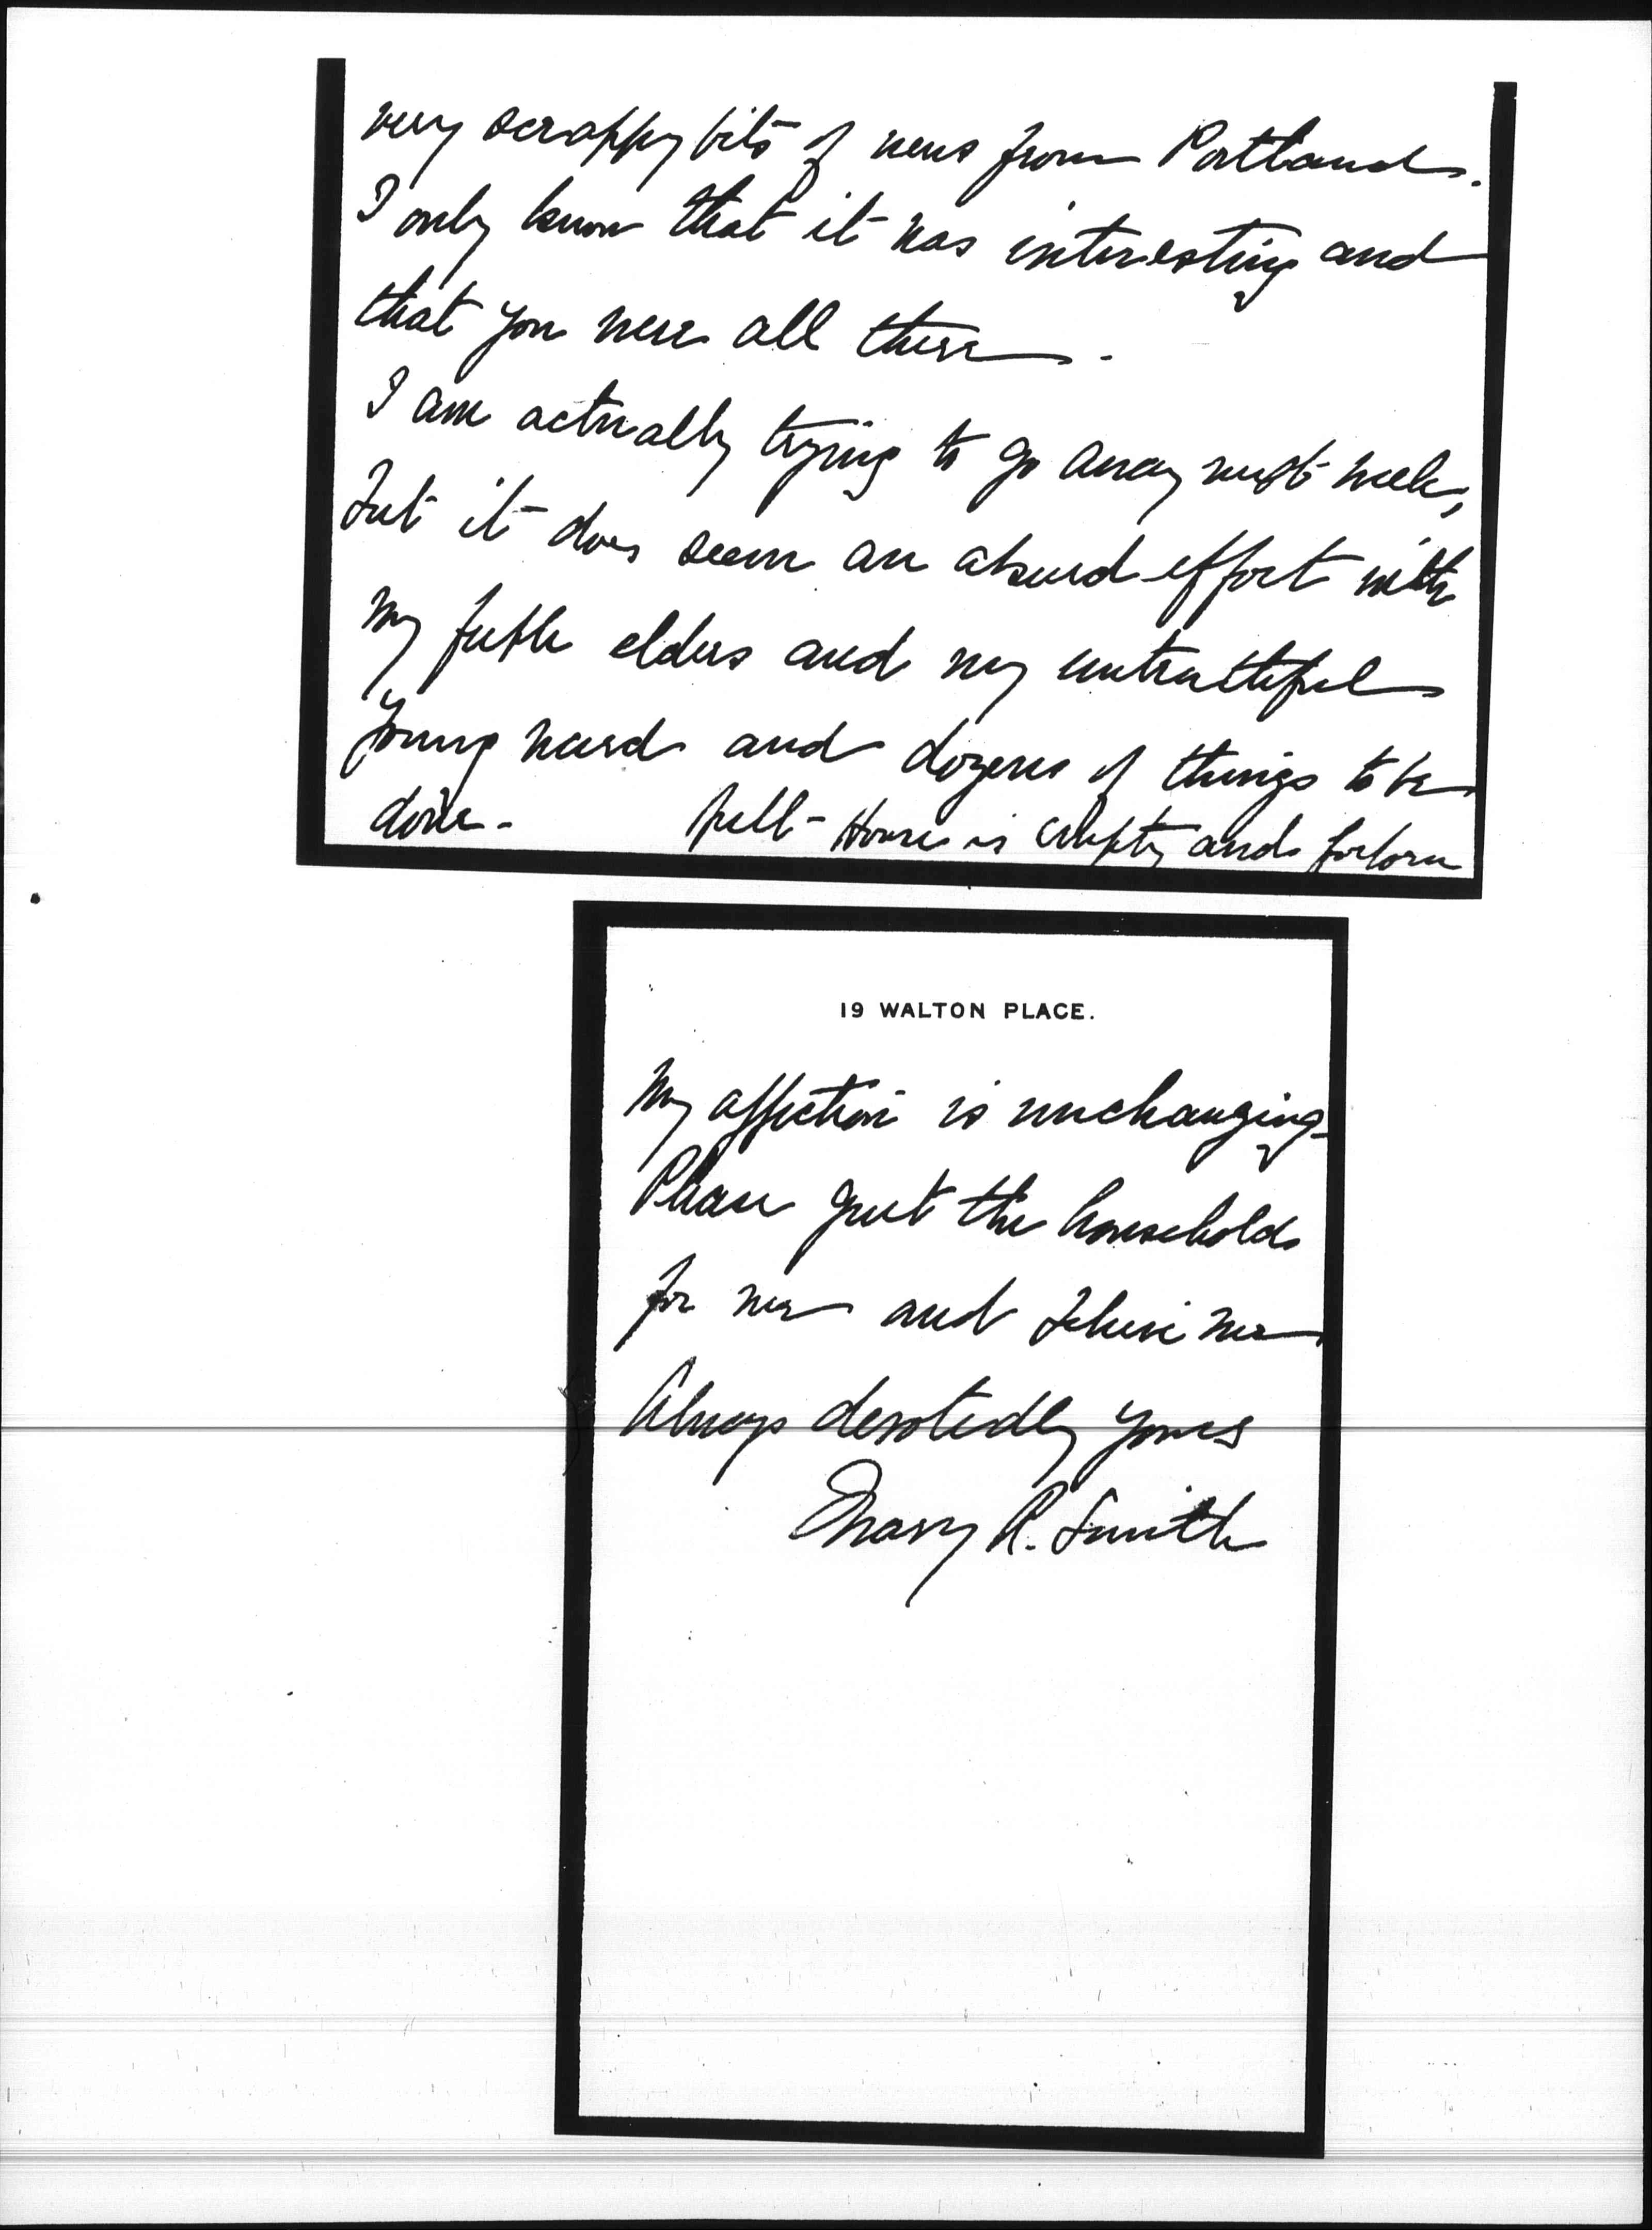 very scrappy bits of news from Portland.
I only know that it was interesting and
that you were all there.
I am actually trying to go away next week,
but it does seem an absurd effort with
my feeble elders and my untruthful
young ward and dozens of things to be
done. Hull-House is empty and forlorn
19 WALTON PLACE.
My affection is unchanging.
Please greet the household
for me and believe me
Always devotedly yours
Mary R. Smith